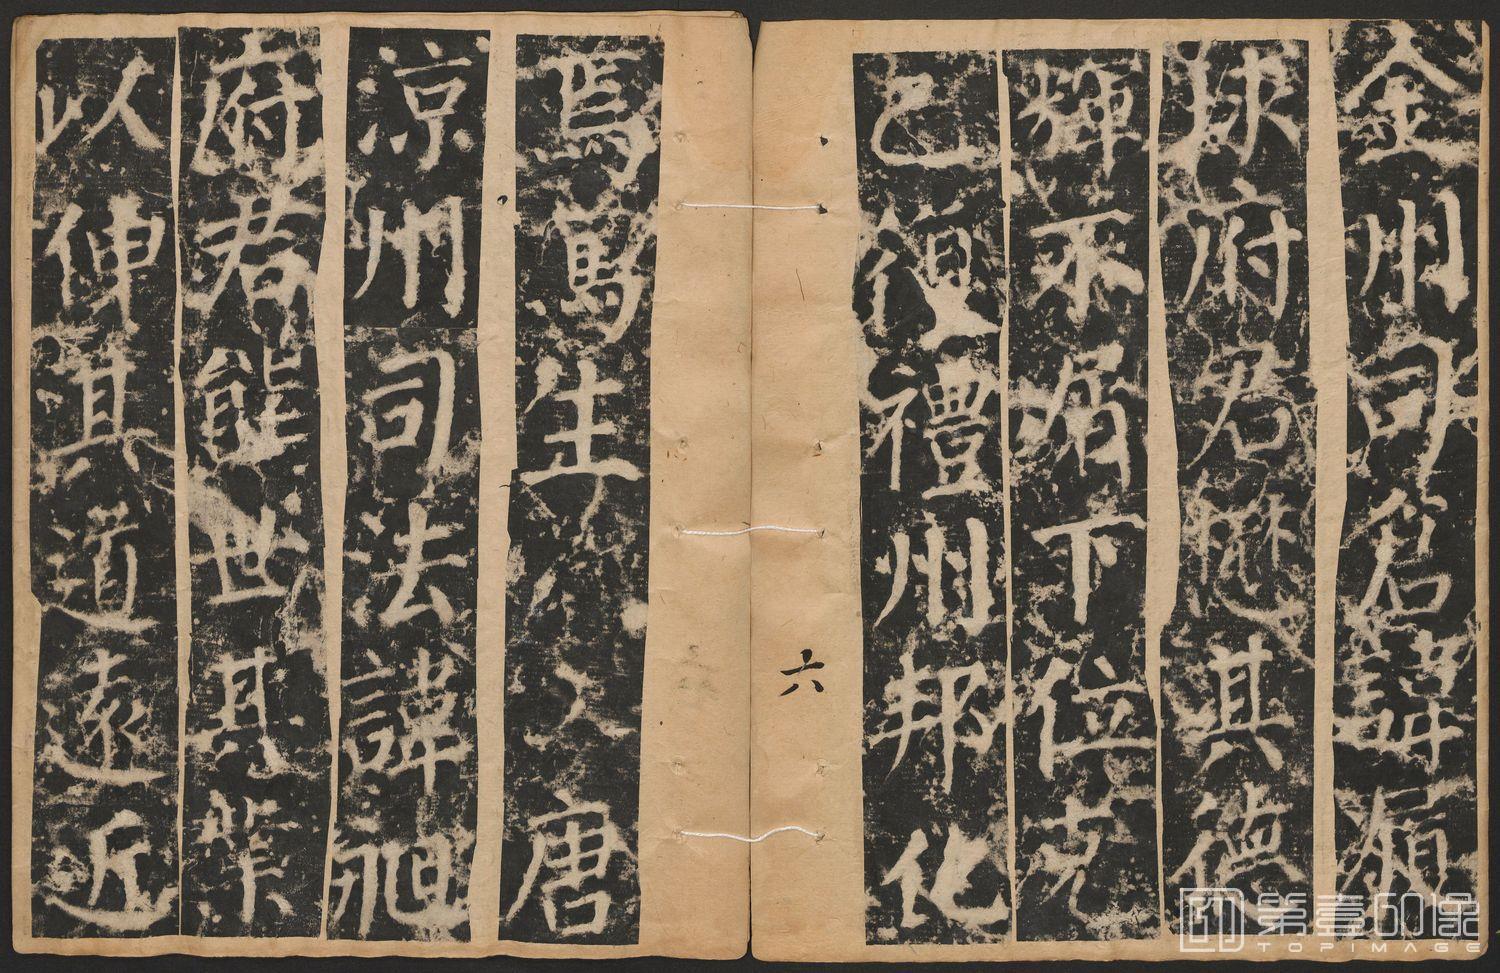 金州司名諱瀕
球府君懋其德
輝不屑下位克
己復禮州邦化
焉篤生 唐
涼州司法諱昶
府君能世其業
以伸其道遠近
六
第壹印象
TOPIMAGE